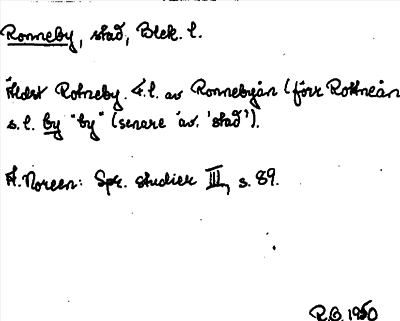 Ronneby, stad, Blek. l.
Äldst Rotneby. F.l. av Ronnebyån (förr Rottneån
s.l. by "by" (senare äv. 'stad').
A. Noreen: Spr. studier III, s. 89.
R.G. 1950